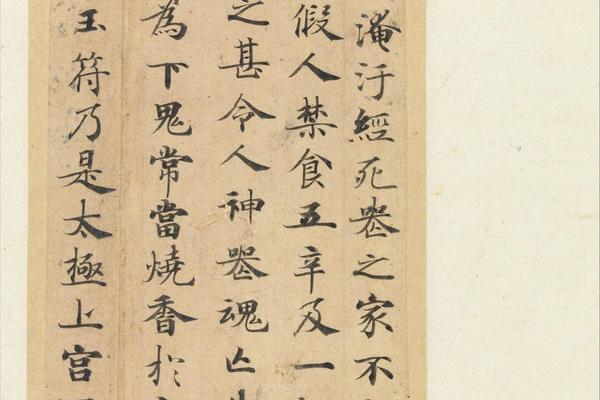 淹汙經死喪之家不
假人禁食五辛及一
之甚令人神喪魂亡
為下鬼常當燒香於
玉符乃是太極上宮